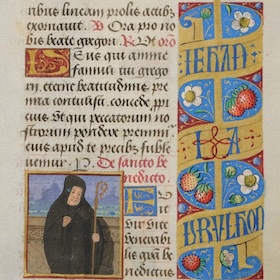 ribus lineam prolis actibus
exornauit. V Ora pro no
bis beate gregori. R Ut oro
Deus qui anime
famuli tui grego
rii eterne beatitudinis pre
mia contulisti concede, pro
picius Ut qui peccatorum no
strorum pondere premim
eius apud te precibus suble
uemur. P. De sancto be
nedicto.
vir vite
Venerabi
lis gratia be
nedictus
IEHAN
BRVLHON